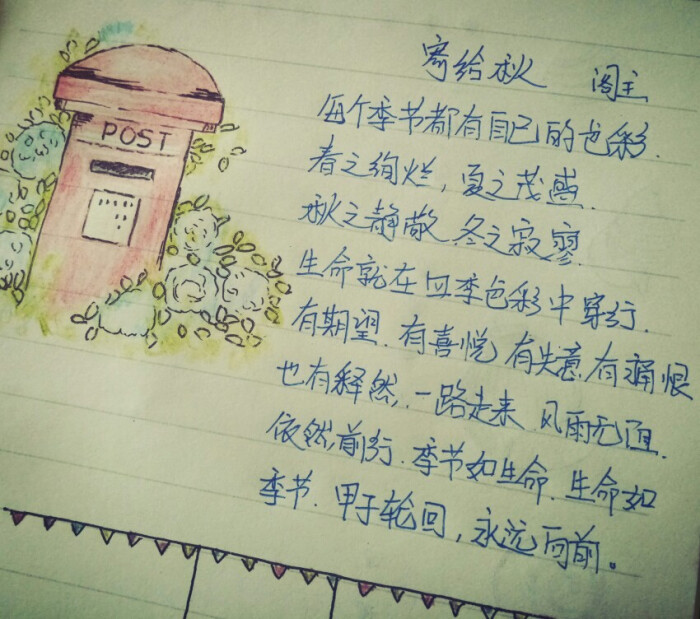 POST
寄给秋 阁主
每个季节都有自己的色彩.
春之绚烂, 夏之茂盛.
秋之静敞.冬之寂寥.
生命就在四季色彩中穿行.
有期望.有喜悦,有失意,有痛恨
也有释然,.一路走来.风雨无阻.
依然前行.季节如生命.生命如
季节.甲子轮回,永远向前。